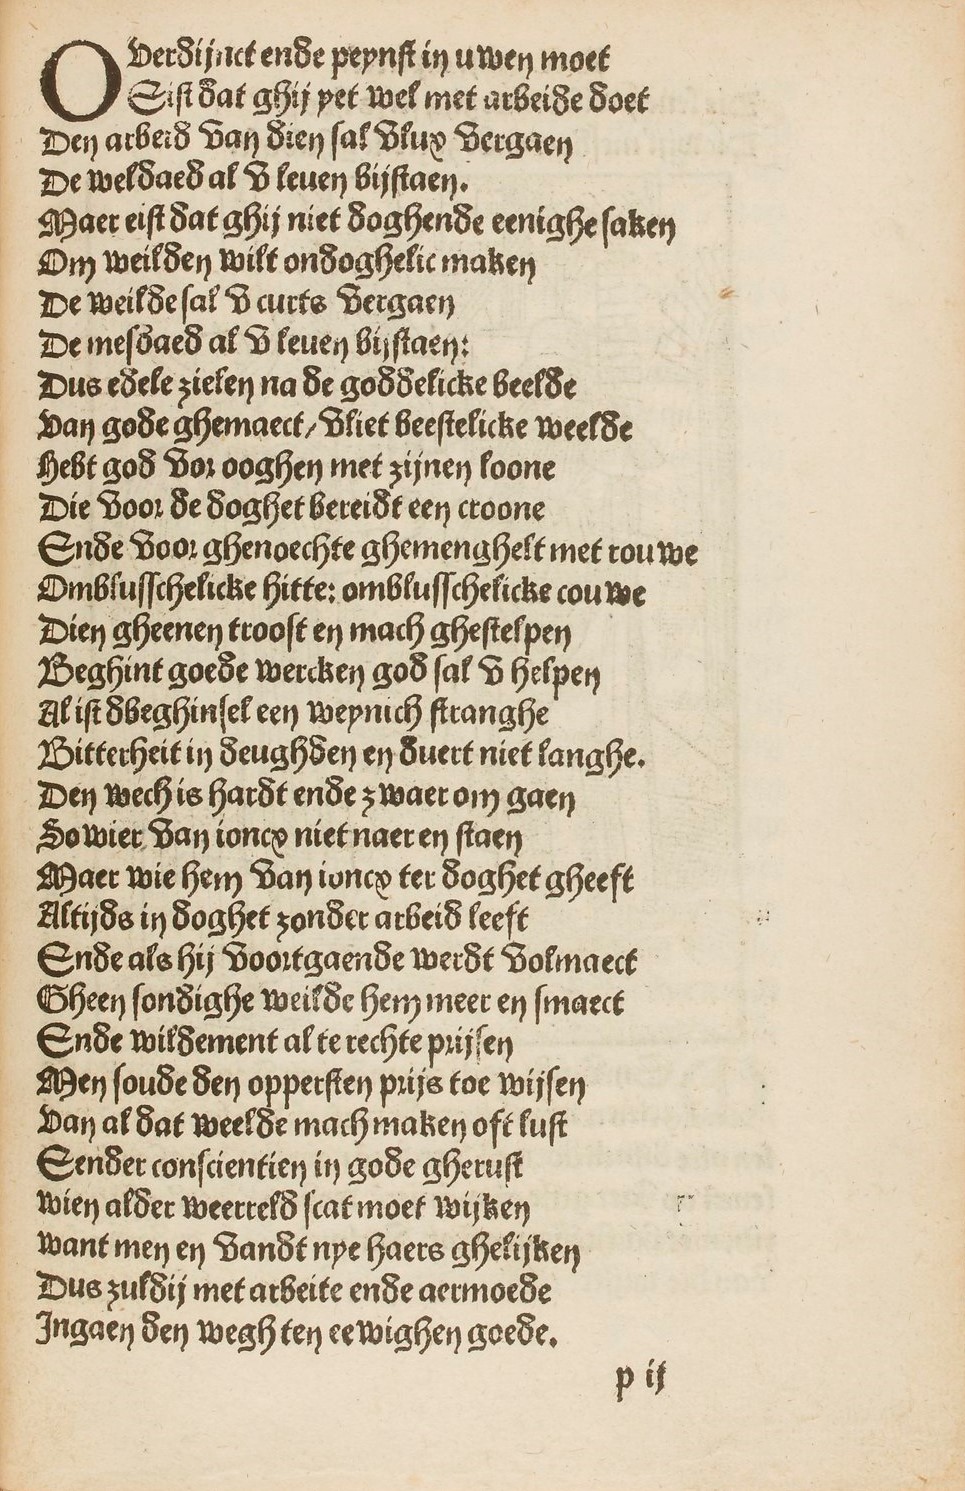 OVerdijnct ende peynst in uwen moet
Eist dat ghij yet wel met arbeide doet
Den arbeid van dien sal vlux vergaen
De weldaed al v leven bijstaen.
Maer eist dat ghij niet doghende eenighe saken
Om weilden wilt ondoghelic maken
De weilde sal v curts vergaen
De mesdaed al v leven bijstaen:
Dus edele zielen na de goddelicke beelde
Van gode ghemaect/ vliet beestelicke weelde
Hebt god vor ooghen met zijnen loone
Die voor de doghet bereidt een croone
Ende voor ghenoechte ghemenghelt met rouwe
Omblusschelicke hitte: omblusschelicke couwe
Dien gheenen troost en mach ghestelpen
Beghint goede wercken god sal v helpen
Al ist dbeghinsel een weynich stranghe
Bitterheit in deughden en duert niet langhe.
Den wech is hardt ende zwaer om gaen
So wier van ioncx niet naer en staen
Maer wie hem van ioncx ter doghet gheeft
Altijds in doghet zonder arbeid leeft
Ende als hij voortgaende werdt volmaect
Gheen sondighe weilde hem meer en smaect
Ende wildement al te rechte prijsen
Men soude den oppersten prijs toe wijsen
Van al dat weelde mach maken oft lust
Eender conscientien in gode gherust
Wien alder weerreld scat moet wijken
Want men en vandt nye haers ghelijken
Dus zuldij met arbeite ende aermoede
Ingaen den wegh ten eewighen goede.
p ij